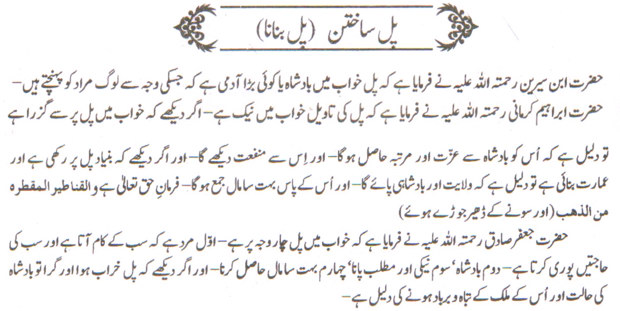 پل ساختن (پل بنانا)
حضرت ابن سیرین رحمتہ اللہ علیہ نے فرمایا ہے کہ پل خواب میں بادشاہ یا کوئی بڑا آدمی ہے کہ جسکی وجہ سے لوگ مراد کو پہنچتے ہیں-
حضرت ابراہیم کرمانی رحمتہ اللہ علیہ نے فرمایا ہے کہ پل کی تاویل خواب میں نیک ہے- اگر دیکھے کہ خواب میں پل پر سے گزرا ہے
تو دلیل ہے کہ اُس کو بادشاہ سے عزّت اور مرتبہ حاصل ہوگا- اور اِس سے منفعت دیکھے گا- اور اگر دیکھے کہ بنیاد پل پر رکھی ہے اور
عمارت بنائی ہے تو دلیل ہے کہ ولایت اور بادشاہی پائے گا- اور اُس کے پاس بہت سامال جمع ہو گا- فرمانِ حق تعالیٰ ہے والقناطیر المقطرہ
من الذھب (اور سونے کے ڈھیر جوڑے ہوئے)
حضرت جعفر صادق رحمتہ اللہ علیہ نے فرمایا ہے کہ خواب میں پل چار وجہ پر ہے- اوّل مرد ہے کہ سب کے کام آتا ہے اور سب کی
حاجتیں پوری کرتا ہے- دوم بادشاہ' سوم نیکی اور مطلب پانا' چہارم بہت سامال حاصل کرنا- اور اگر دیکھے کہ پل خراب ہوا اور گرا تو بادشاہ
کی حالت اور اُس کے ملک کے تباہ و برباد ہونے کی دلیل ہے-